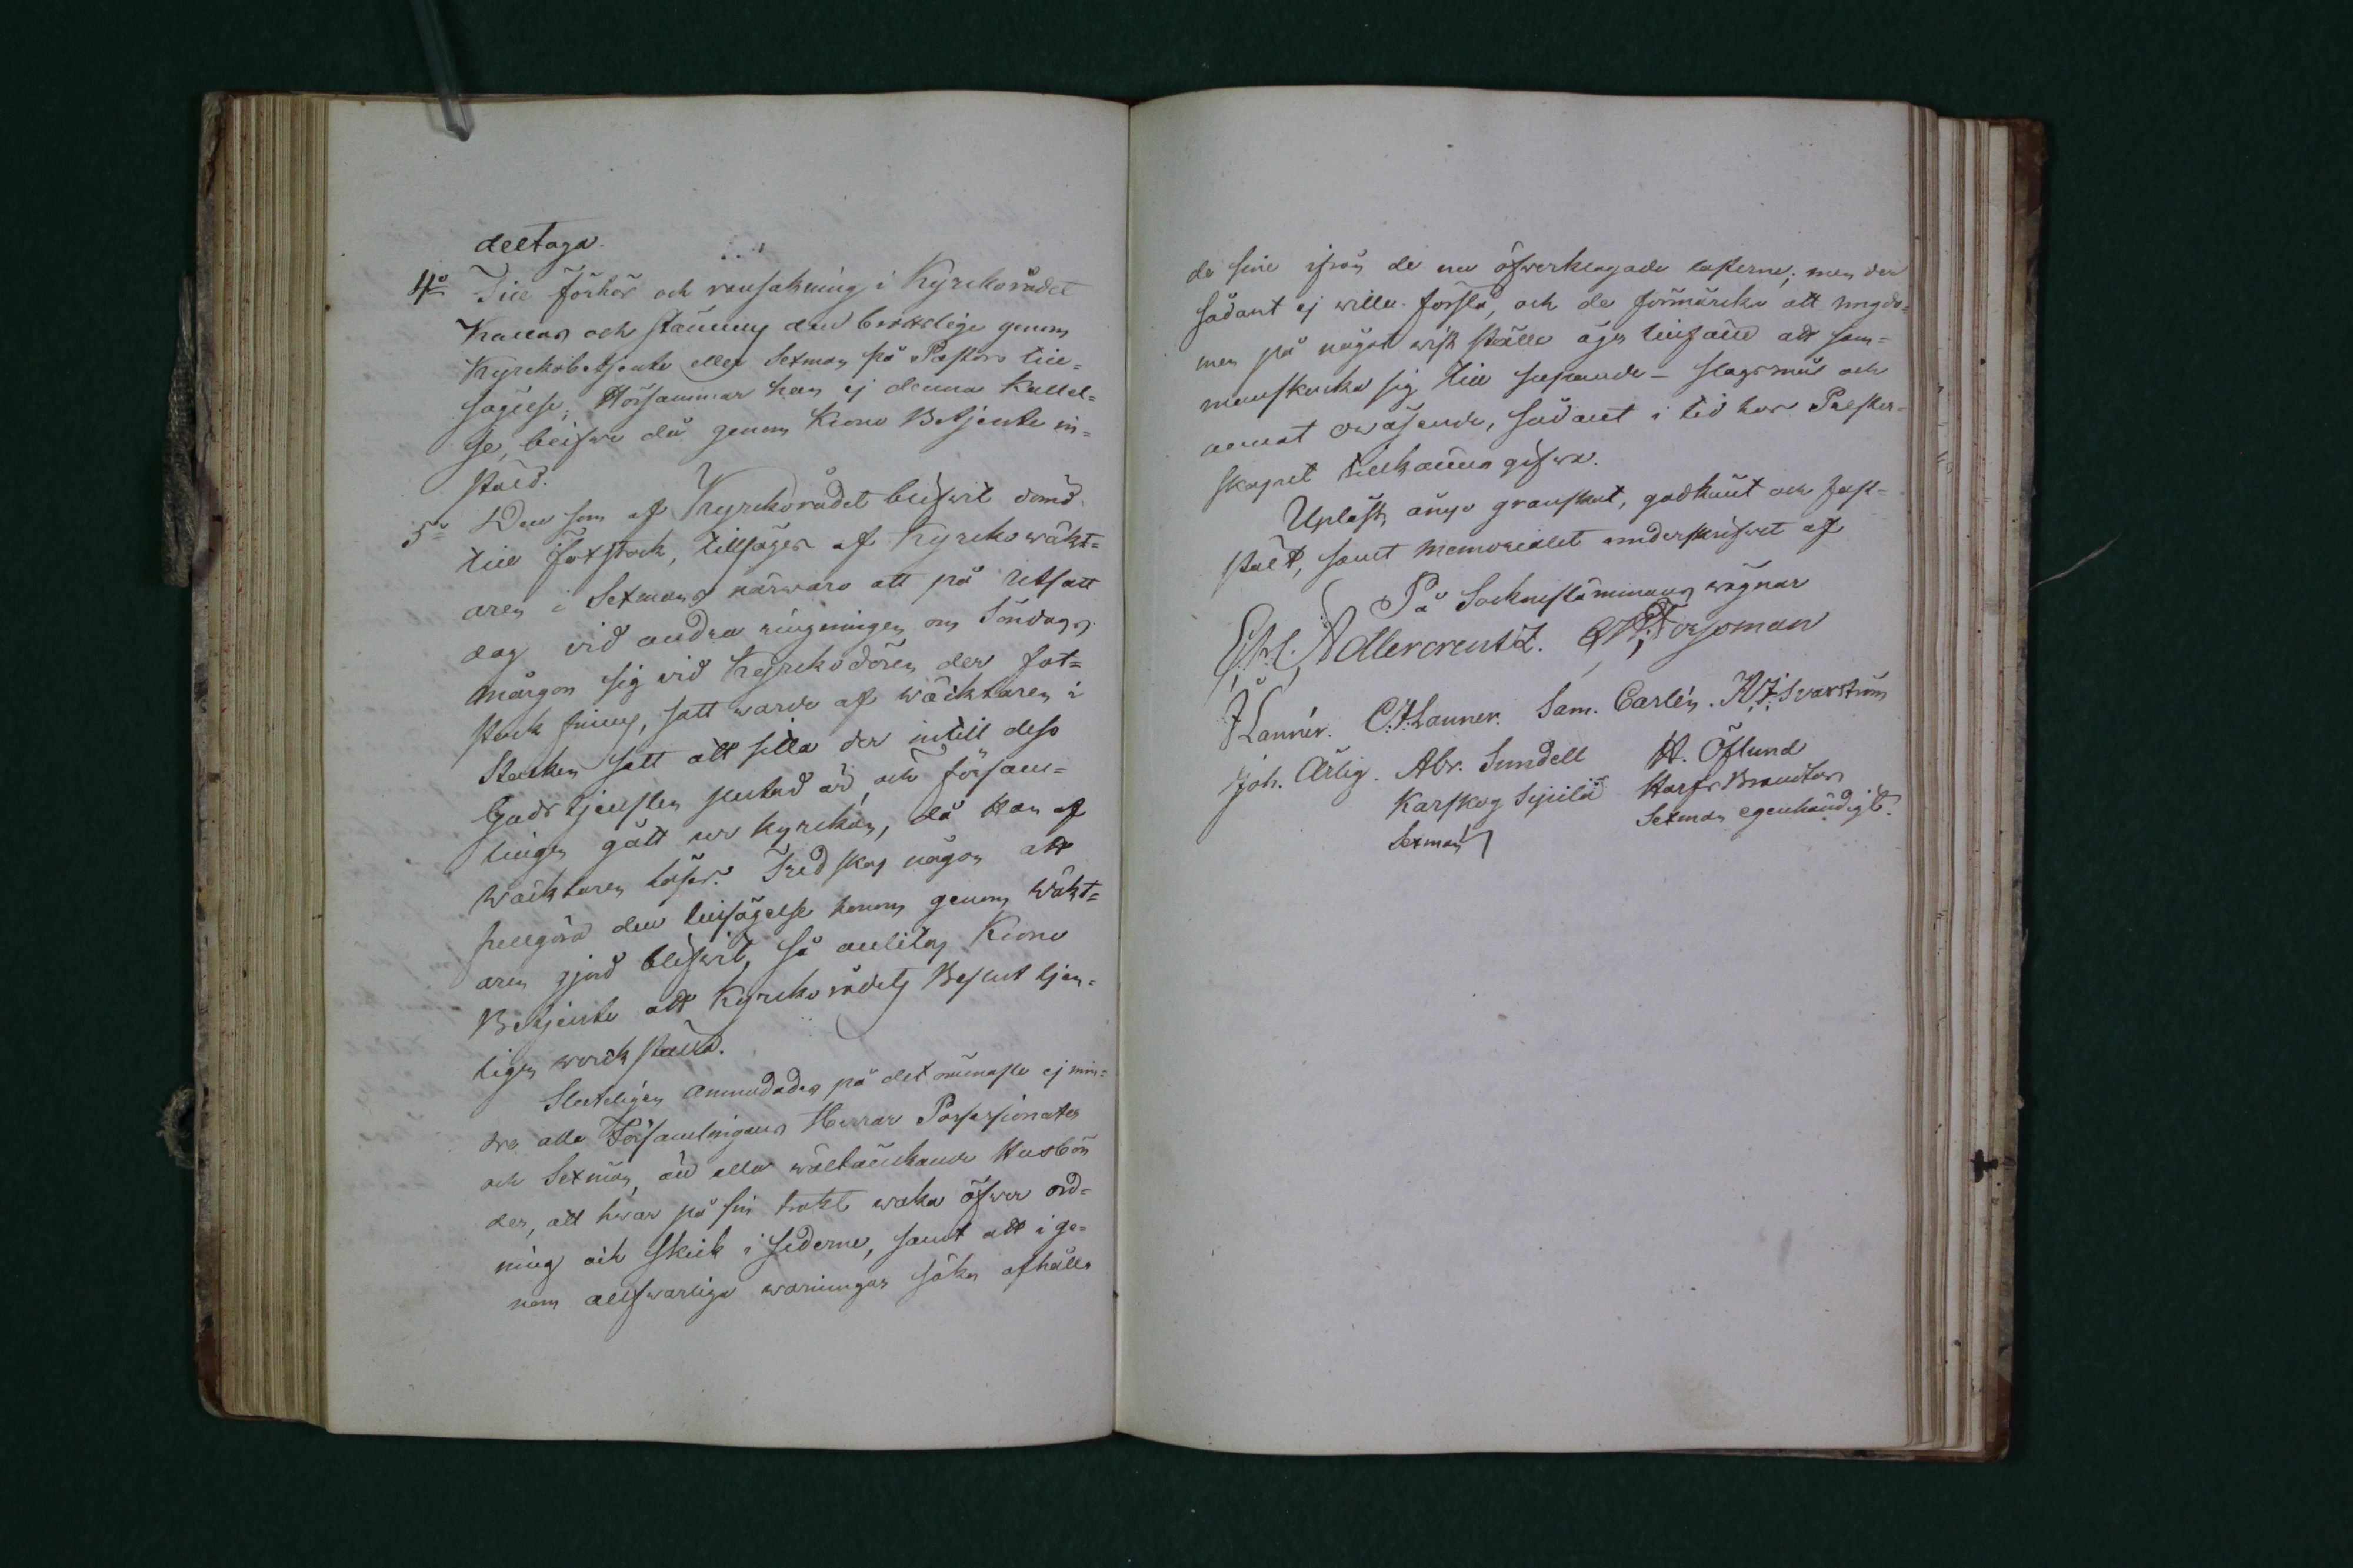 deeltaga.
4o Till förhör och ransakning i Kyrkorådet
Kallas och stämmes den brottslige genom
Kyrkobetjente eller Sexman på Pastors till-
sägelse; Hörsammar han ej denna Kallel-
se, blifwe då genom Krono Betjente in-
stäld.
5o Den som af Kyrkorådet blifwit dömd
till Fotstock, tillsäges af Kyrkowäkt-
aren i Sexmans närwaro att på utsatt
dag vid andra ringningen om Söndags
mårgon sig vid Kyrkodören der fot-
stock finnes, satt warde af wäcktaren i
Stocken samt att sitta der intill dess
Gudstjensten slutad är, och försam-
lingen gått ur kyrkan, då Han af
Wäcktaren löses. Tredskas någon att
fullgöra den tilsägelse honom genom Wäkt-
aren gjord blifwit, så anlitas Krono
Betjente att Kyrko rådets Beslut tjen-
ligen werckställa.
Sluteligen anmodades på det ömmaste ej min-
dre alla Församlingens Herrar Possessionater
och Sexmän, än alla wältänkande Husbön
der, att hwar på sin trakt waka öfwer ord-
ning och skick i sederne, samt att i ge-
nom allfwarliga warningar söka afhålla
de sine ifrån de nu öfwerklagade lasterne; men der
sådant ej wille förslå, och de förmärcka att ungdo-
men på något wist ställe äger tilfälle att sam-
manskocka sig till supande - slagsmål och
annat owäsende, sådant i tid hos Prester-
skapet tillkänna gifwa.
Upläst, ånyo granskat, godkänt och fast-
stält, samt Memorialet underskrifwet af
På Socknestämmans wägnar
Adlercreutz. Forsoman
J Lannér. C.F. Lanner. Sam. Carlén. K.J. Svartström
Joh. Ärlig. Abr. Sundell H. Öflund
Karskog Sipilä Harfs Brandtas
Sexman Sexman egenhändigt.